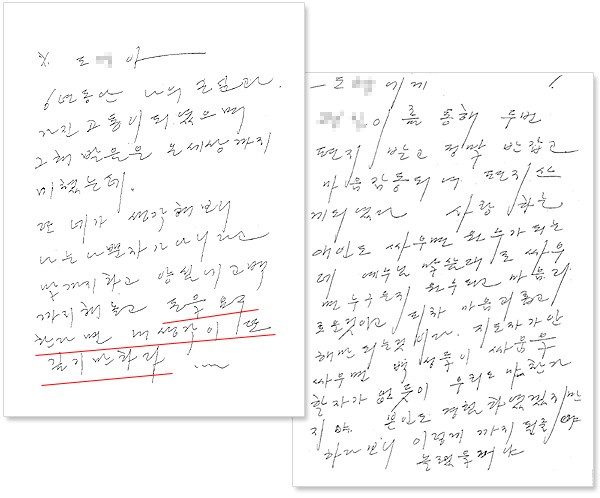 도 아
6년동안 나의 
고통이 되었으며
그 해 받음을 온세상까지
미쳤는데.
또 네가 생각해보니
나는 나쁜자가 아니라
맞게지하고 양심네 고백
까지 해 놓고 도움 요구
한다면 내 생각이 또
길기만하다 ....
도 에게
이를 통해 두번
편지 받고 정말 반갑고
마음 감동되어 편지 쓰
게되였다 사랑하는
애인도 싸우면 원수가 되는
데 예수님 말씀대로 싸우
면 누구든지 원수되고 마음괴
로운것이고 피차 마음괴롭고
해만 되는것이다. 지도자가 안
싸우면 백성들이 싸움을
할자가 없듯이 우리도 마찬가
지야. 본인도 경험하였겠지만
하다보니 이렇게까지 될줄이야
몰랐을거야